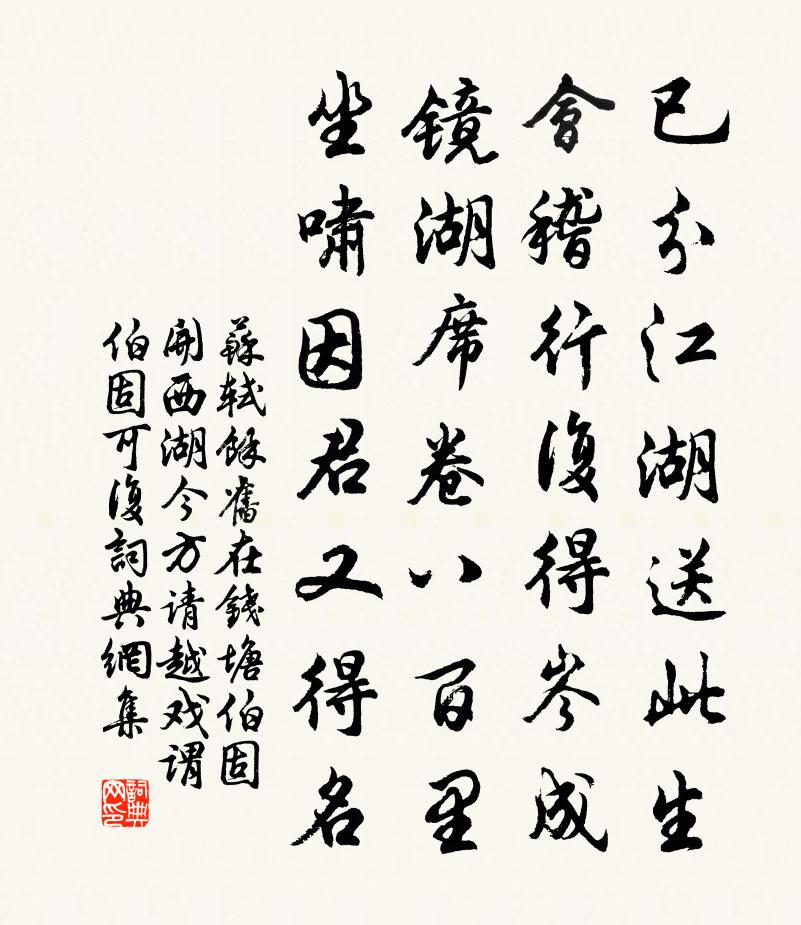 已分江湖送此生
會稽行復得岑成
鏡湖席卷八百里
坐嘯因君又得名
蘇軾餘舊在錢塘伯固
開西湖今方请越戏谓
伯固可復詞典網集
詞典
网印